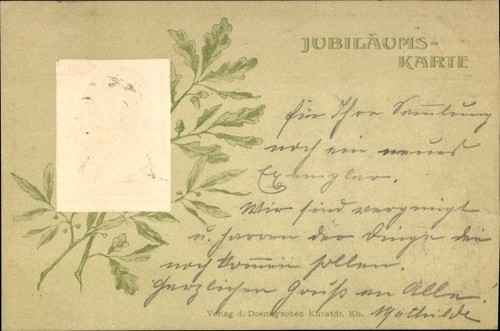 JUBILÄUMS-
KARTE
für Ihre Sammlung
noch ein neues
Exemplar.
Wir sind vergnügt
u. harren der Dinge die
noch kommen sollen.
Herzlichen Gruß an Alle!
Mathilde
Verlag d. Doering'schen Kunstdr. Kh.